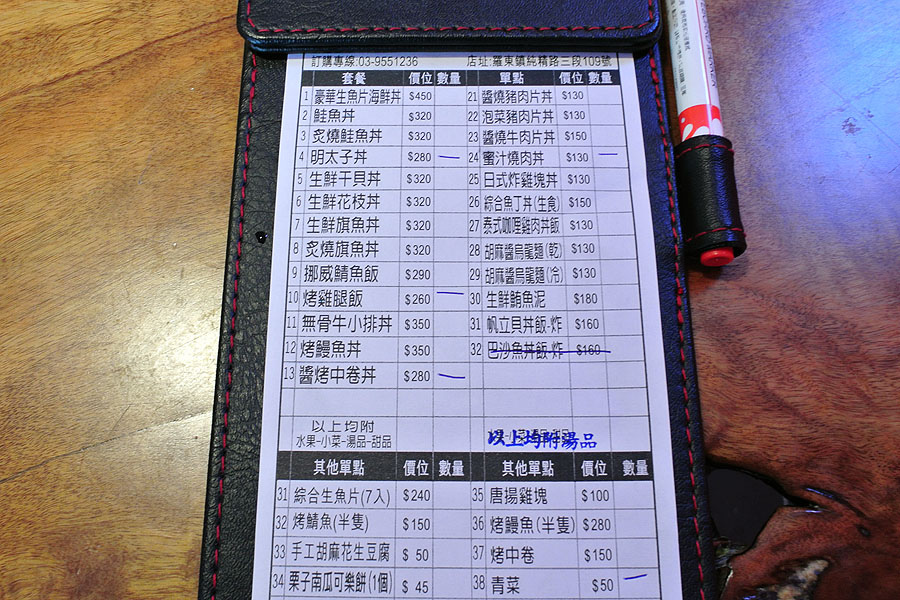 訂購專線:03-9551236 店址:羅東鎮純精路三段109號
套餐 價位 數量 單點 價位 數量
1 豪華生魚片海鮮丼 $450 21 醬燒豬肉片丼 $130
2 鮭魚丼 $320 22 泡菜豬肉片丼 $130
3 炙燒鮭魚丼 $320 23 醬燒牛肉片丼 $150
4 明太子丼 $280 — 24 蜜汁燒肉丼 $130 —
5 生鮮干貝丼 $320 25 日式炸雞塊丼 $130
6 生鮮花枝丼 $320 26 綜合魚丁丼(生食) $150
7 生鮮旗魚丼 $320 27 泰式咖哩雞肉丼飯 $130
8 炙燒旗魚丼 $320 28 胡麻醬烏龍麵(乾) $130
9 挪威鯖魚飯 $290 29 胡麻醬烏龍麵(冷) $130
10 烤雞腿飯 $260 — 30 生鮮鮪魚泥 $180
11 無骨牛小排丼 $350 31 帆立貝丼飯-炸 $160
12 烤鰻魚丼 $350 32 巴沙魚丼飯-炸 $160
13 醬烤中卷丼 $280 —
以上均附
水果-小菜-湯品-甜品 以上均附湯品
其他單點 價位 數量 其他單點 價位 數量
31 綜合生魚片(7入) $240 35 唐揚雞塊 $100
32 烤鯖魚(半隻) $150 36 烤鰻魚(半隻) $280
33 手工胡麻花生豆腐 $50 37 烤中卷 $150
34 栗子南瓜可樂餅(1個) $45 38 青菜 $50 —